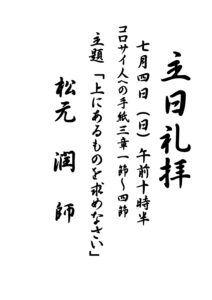 主日礼拝
七月四日（日）午前十時半
コロサイ人への手紙三章一節～四節
主題「上にあるものを求めなさい」
松元 潤 師